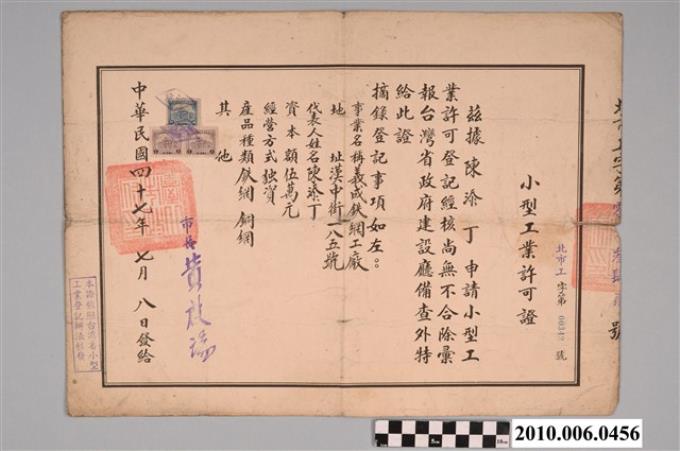 小型工業許可證
北市工字第00347號
茲據陳添丁申請小型工
業許可登記經核尚無不合除彙
報台灣省政府建設廳備查外特
給此證
摘錄登記事項如左：
事業名稱義成鉄網工廠
地址漢中街一八五號
代表人姓名陳添丁
資本額伍萬元
經營方式独資
產品種類鉄網 銅網
其他
市長黃啟瑞
中華民國四十七年七月八日發給
本證依照台灣省小型
工業登記辦法核發
號
2010.006.0456